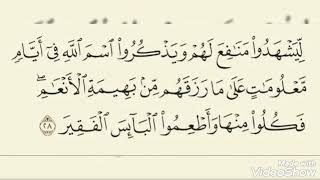 لِّيَشْهَدُوا۟ مَنَـٰفِعَ لَهُمْ وَيَذْكُرُوا۟ ٱسْمَ ٱللَّهِ فِىٓ أَيَّامٍ
مَّعْلُومَـٰتٍ عَلَىٰ مَا رَزَقَهُم مِّنۢ بَهِيمَةِ ٱلْأَنْعَـٰمِ ۖ
فَكُلُوا۟ مِنْهَا وَأَطْعِمُوا۟ ٱلْبَآئِسَ ٱلْفَقِيرَ ٢٨
Made with
VideoShow